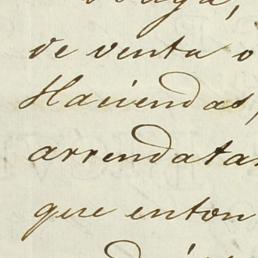 de venta o
Haciendas,
arrendatar
que enton